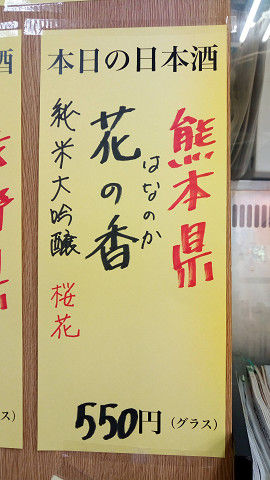 本日の日本酒
熊本県
はなのか
花の香
純米大吟醸 桜花
550円(グラス)
酒
ス)